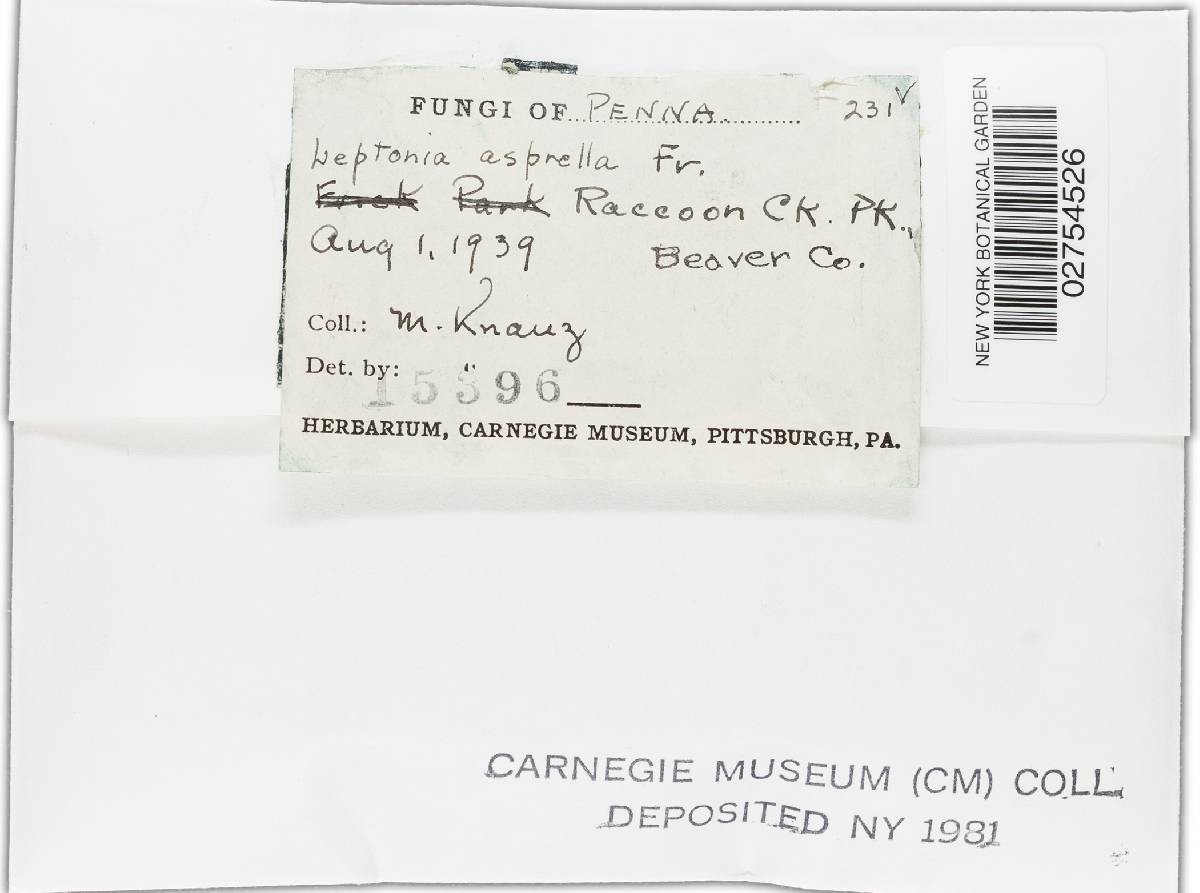 FUNGI OF PENNA 231 ✓
Leptonia asprella Fr.
Frick Park Raccoon CK. PK.,
Aug 1, 1939 Beaver Co.
Coll.: M. Knauz
Det. by: "
15396
HERBARIUM, CARNEGIE MUSEUM, PITTSBURGH, PA.
NEW YORK BOTANICAL GARDEN
02754526
CARNEGIE MUSEUM (CM) COLL.
DEPOSITED NY 1981